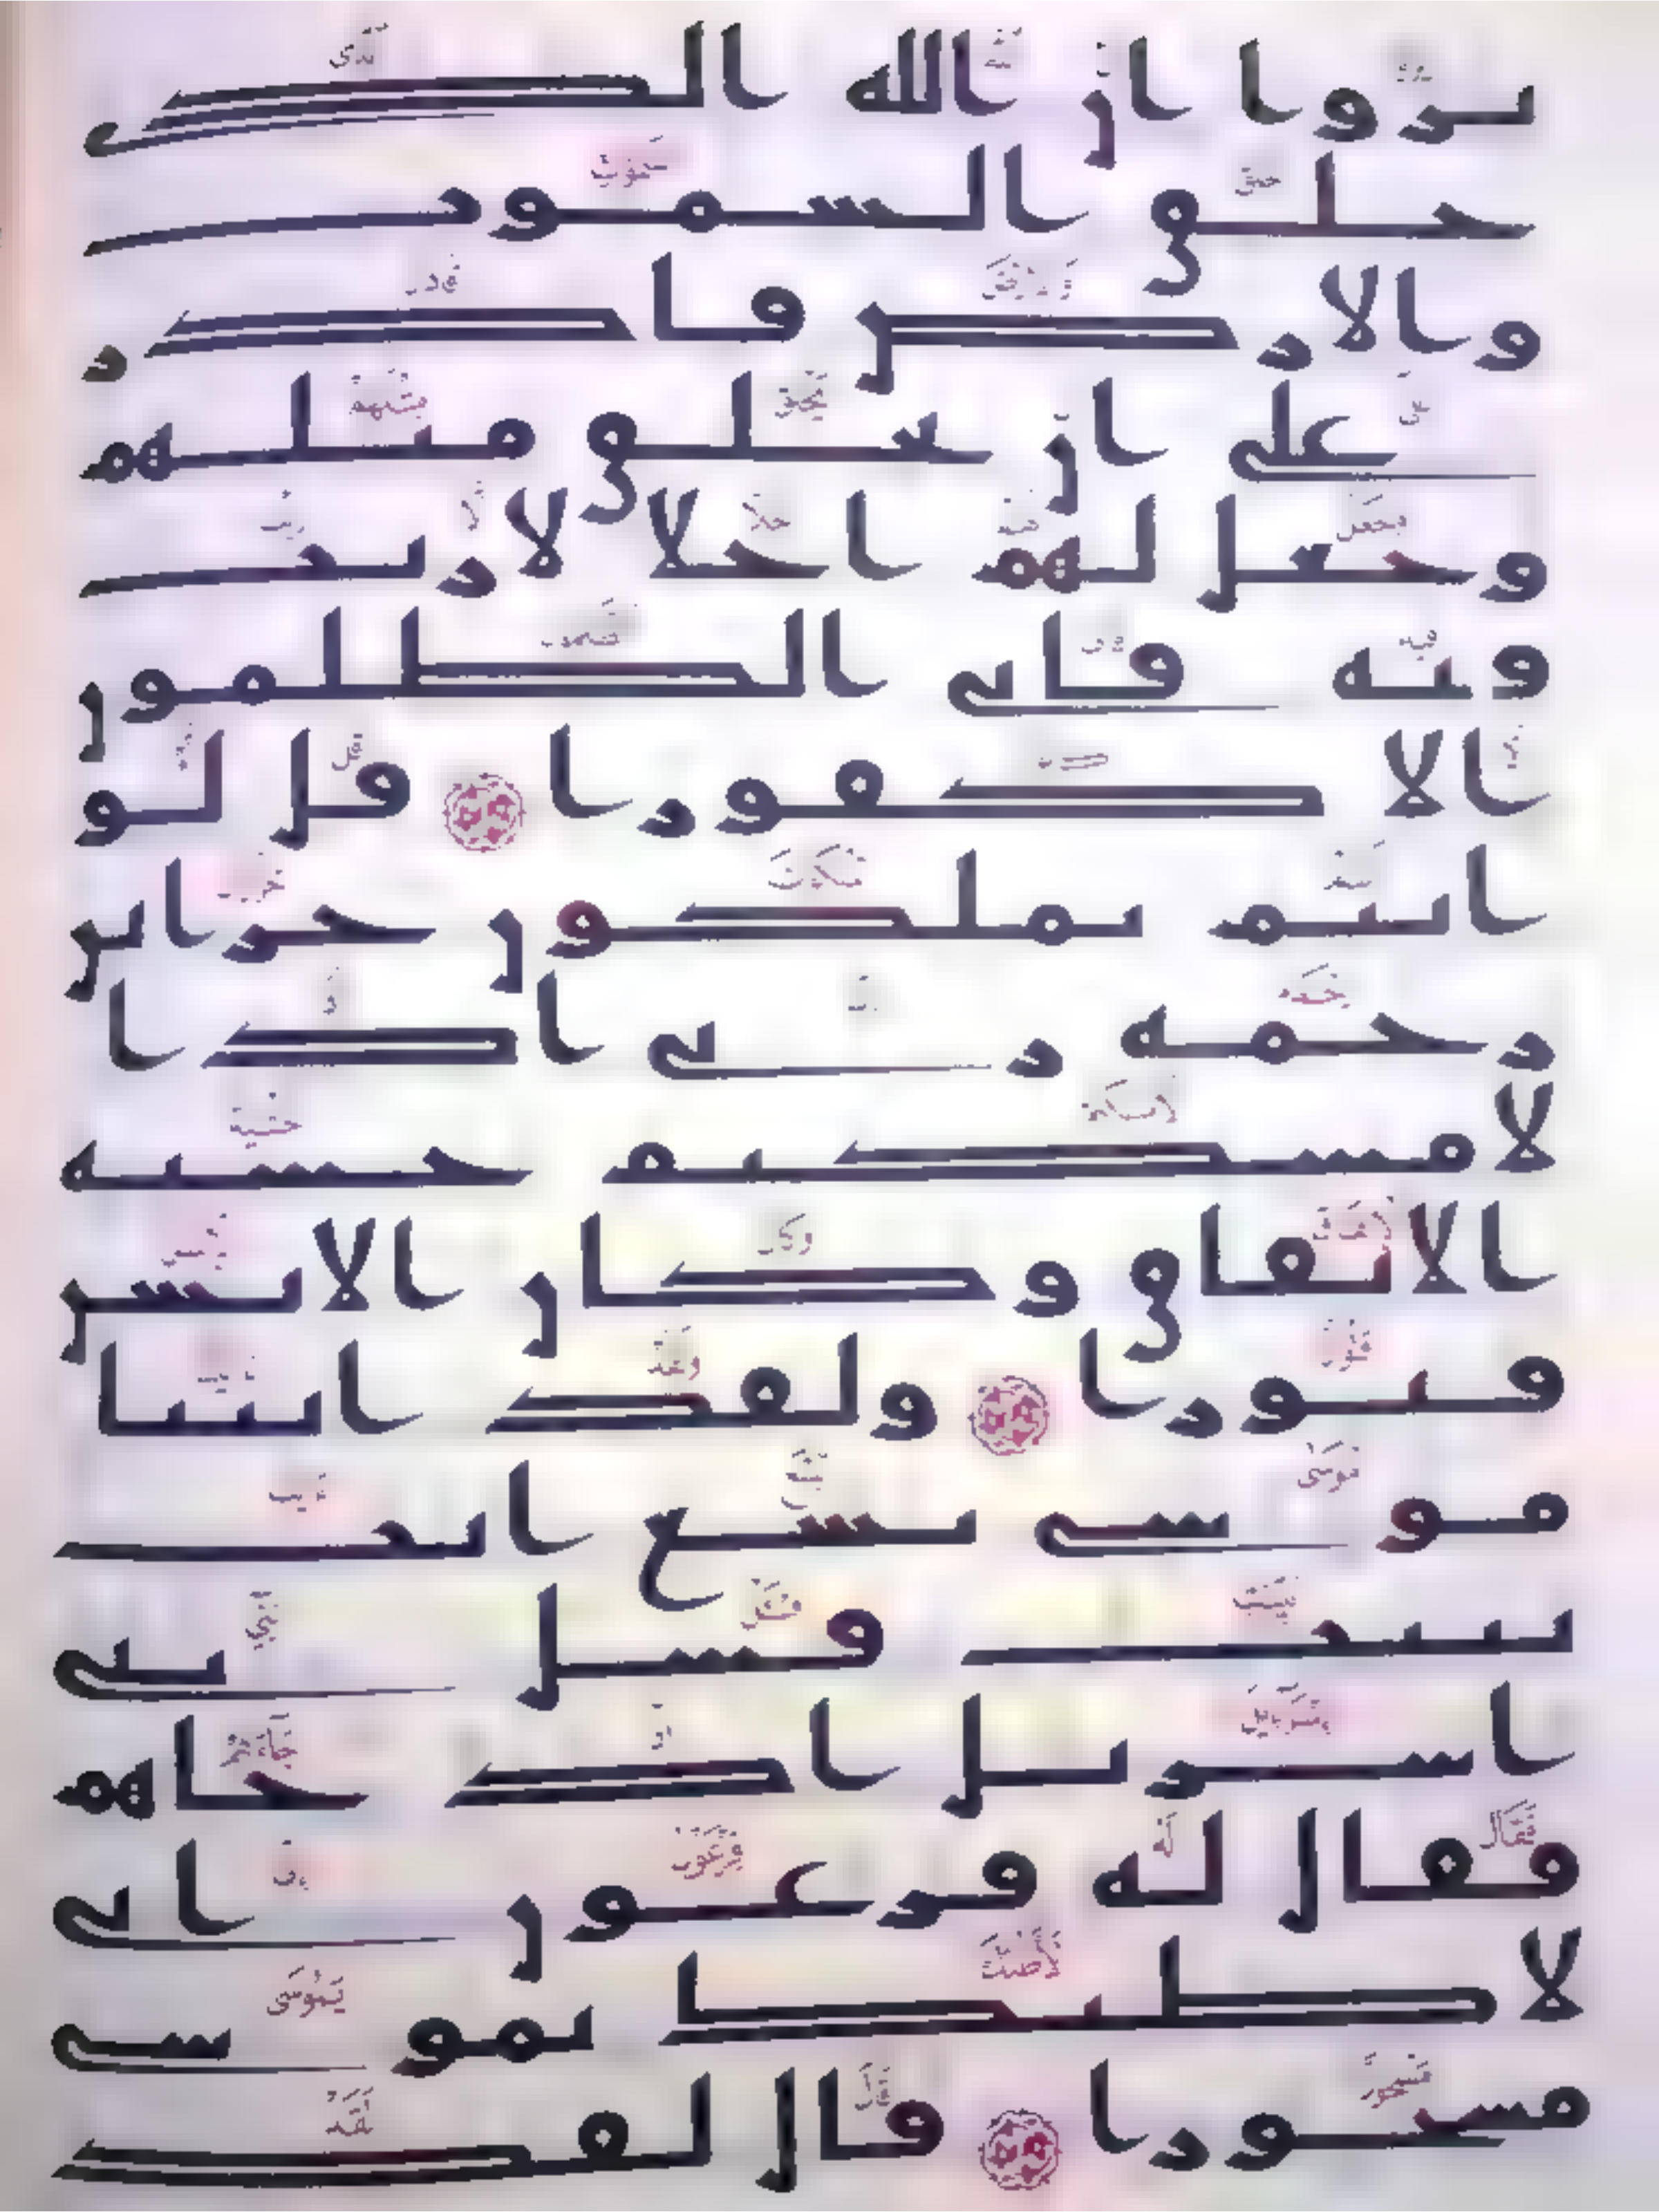 يروا ان الله الذى
خلق السموت
والارض قادر
على ان يخلق مثلهم
وجعل لهم اجلا لا ريب
فيه فابى الظلمون
الا كفورا قل لو
انتم تملكون خزاين
رحمه ربى اذا
لامسكتم خشيه
الانفاق وكان الانسن
قتورا ولقد اتينا
موسى تسع ايت
بينت فسل بنى
اسريل اذ جاهم
فقال له فرعون انى
لاظنك يموسى
مسحورا قال لقد